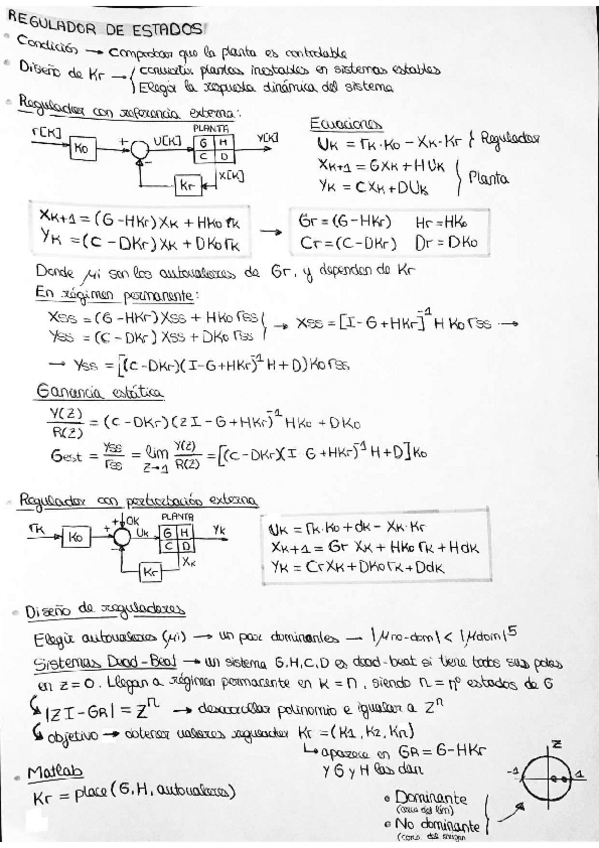 REGULADOR DE ESTADOS
Condición → comprobar que la planta es controlable
Diseño de Kr → { convertir plantas inestables en sistemas estables
Elegir la respuesta dinámica del sistema
Regulador con referencia externa:
r[K] Ko + - U[K] PLANTA G H C D Y[K] X[K] Kr
Ecuaciones
UK = rK·Ko - XK·Kr } Regulador
XK+1 = GXK + HUK
YK = CXK + DUK } Planta
XK+1 = (G-HKr) XK + HKo rK
YK = (C-DKr) XK + DKo rK
→ Gr = (G-HKr) Hr = HKo
Cr = (C-DKr) Dr = DKo
Donde μi son los autovalores de Gr, y dependen de Kr
En régimen permanente:
XSS = (G-HKr) XSS + HKo rSS
YSS = (C-DKr) XSS + DKo rSS } → XSS = [I-G+HKr]⁻¹ H Ko rSS →
→ YSS = [(C-DKr)(I-G+HKr)⁻¹ H + D) Ko rSS
Ganancia estática
Y(Z)/R(Z) = (C-DKr)(ZI-G+HKr)⁻¹ HKo + DKo
Gest = YSS/rSS = lim Z→1 Y(Z)/R(Z) = [(C-DKr)(I G+HKr)⁻¹ H+D] Ko
Regulador con perturbación externa
rK Ko + + dK - UK PLANTA G H C D YK XK Kr
UK = rK·Ko + dK - XK·Kr
XK+1 = Gr XK + HKo rK + HdK
YK = Cr XK + DKo rK + DdK
Diseño de reguladores
Elegir autovalores (μi) → un par dominantes → |μno-dom| < |μdom|⁵
Sistemas Dead-Beat → un sistema G,H,C,D es dead-beat si tiene todos sus polos
en z=0. Llegan a régimen permanente en K = n, siendo n = nº estados de G
|ZI - GR| = Zⁿ → desarrollar polinomio e igualar a Zⁿ
objetivo → obtener valores regulador Kr = (K1, K2, Kn)
aparece en GR = G-HKr
y G y H las dan
Matlab
Kr = place(G, H, autovalores)
Z
-1 1
Dominante
No dominante